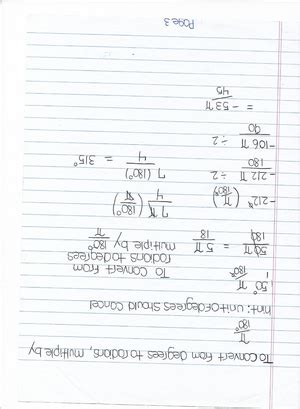 To convert from degrees to radians, multiple by
π/180°
hint: unit of degrees should cancel
50° π/180°
50π/180 = 5π/18
To convert from
radians to degrees
multiple by 180°/π
-212° (π/180°)
-212π/180 ÷2
-106π/90 ÷2
= -53π/45
7π/4 (180°/π)
7(180°)/4 = 315°
Page 3